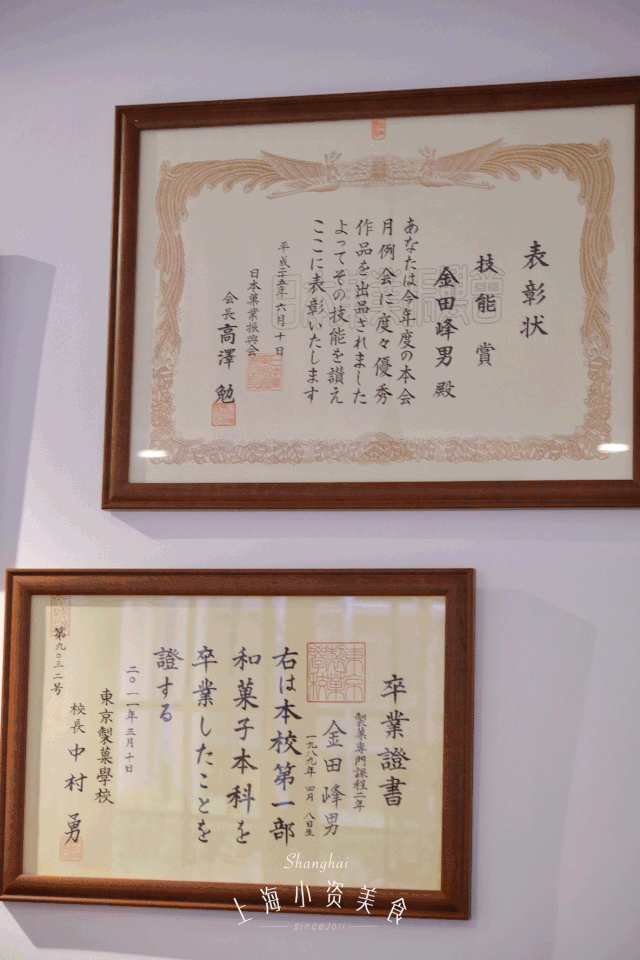 表彰状
技能賞
金田峰男 殿
あなたは今年度の本会
月例会に度々優秀
作品を出品されました
よってその技能を讃え
ここに表彰いたします
平成二十五年六月十日
日本菓業振興会
会長 高澤 勉
卒業證書
製菓専門課程二年
金田峰男
一九八九年 四月 八日生
右は本校第一部
和菓子本科を
卒業したことを
證する
二〇一一年三月十日
東京製菓學校
校長 中村 勇
第九〇三二号
Shanghai
上海小资美食
since2011